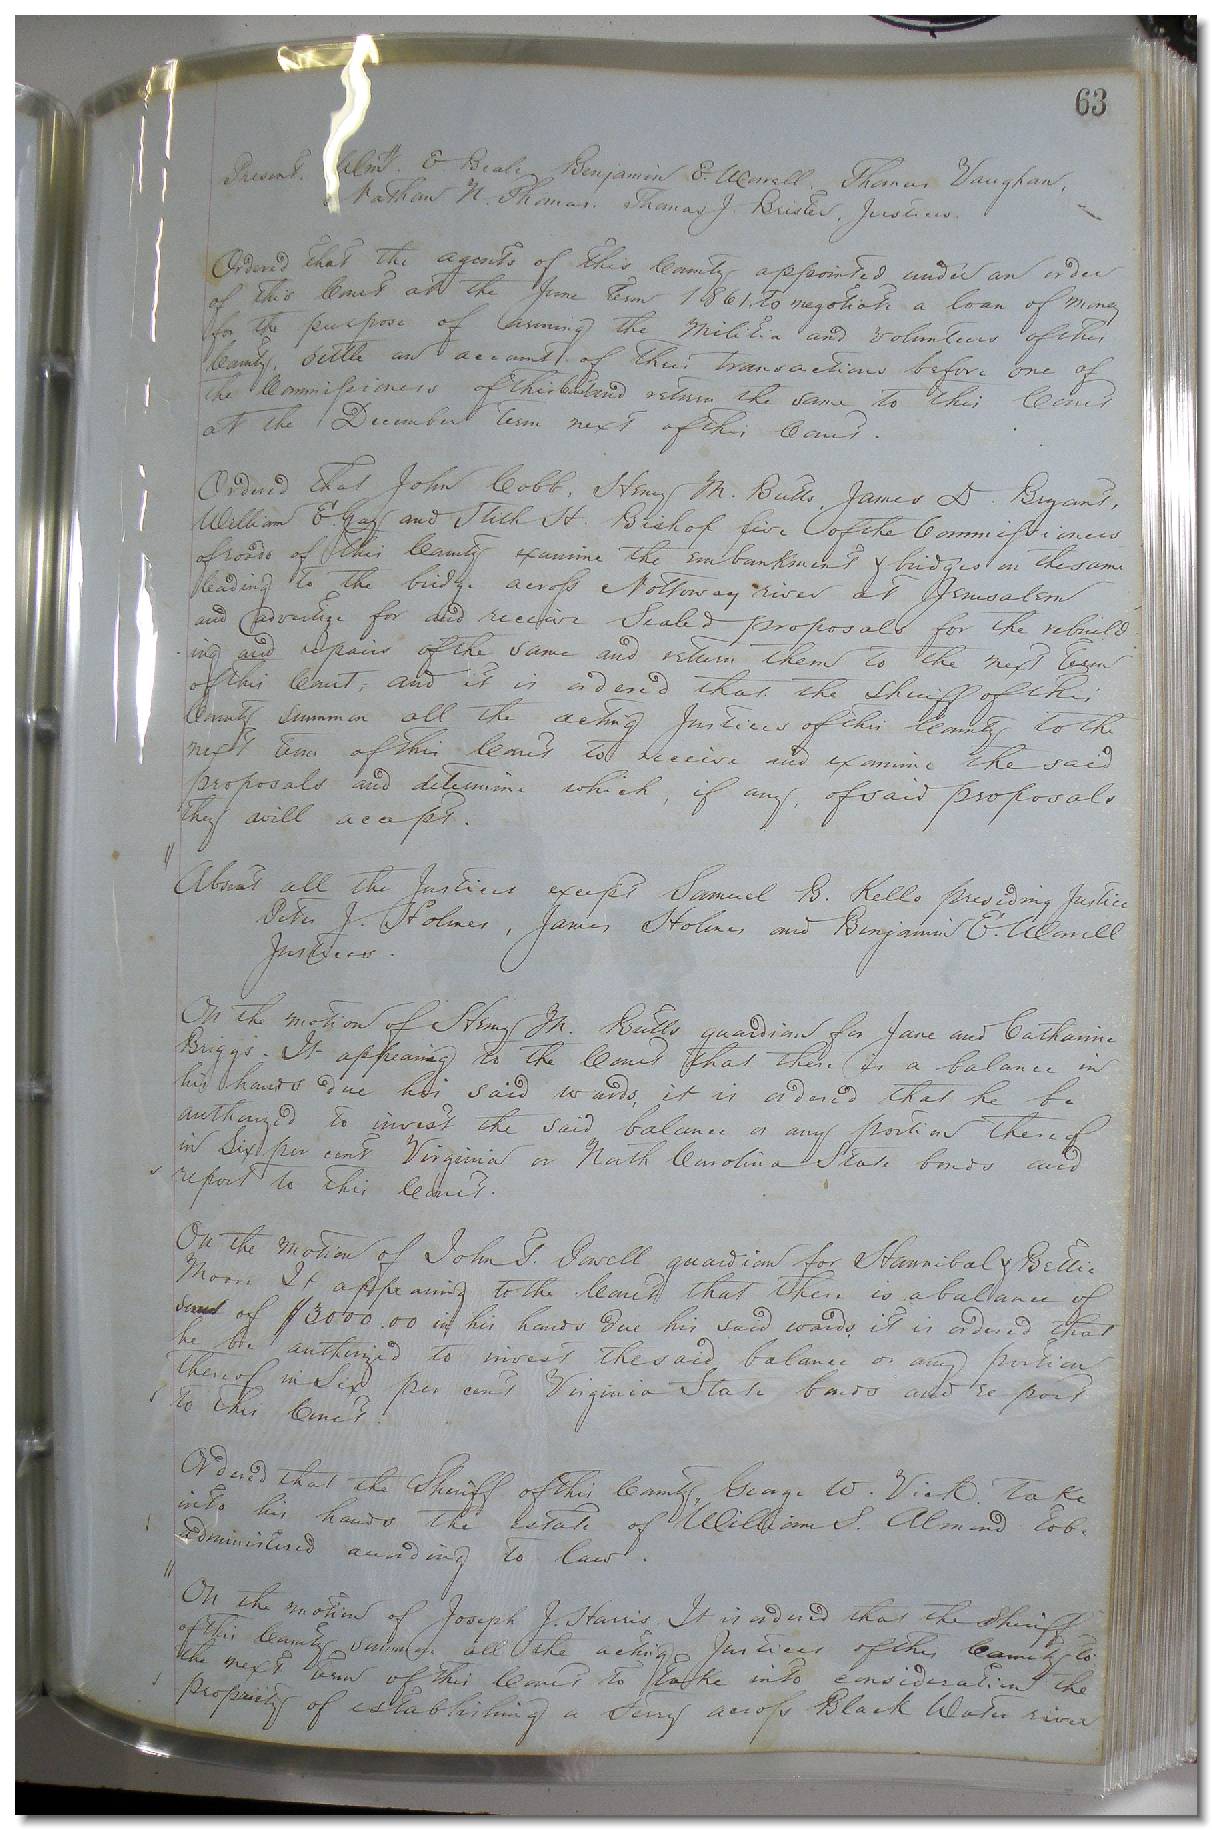 63
Present. Wm. E Beale, Benjamin E. Worrell. Thomas Vaughan,
Nathan N. Thomas. Thomas J. Brister, Justices.
Ordered that the agents of this County appointed under an order
of this Court at the June Term 1861. to negotiate a loan of money
for the purpose of arming the Militia and Volunteers of this
County, settle an account of their transactions before one of
the Commissioners of this Court and return the same to this Court
at the December term next of this Court.
Ordered that John Cobb, Henry M. Butts, James D. Bryant,
William E Gay and Stith H. Bishop five of the Commissioners
of roads of this County examine the embankment & bridges on the same
leading to the bridge across Nottoway river at Jerusalem
and advertise for and receive Sealed proposals for the rebuild
ing and repairs of the same and return them to the next term
of this Court, and it is ordered that the Sheriff of this
County summon all the acting Justices of this County to the
next term of this Court to receive and examine the said
proposals and determine which, if any, of said proposals
they will accept.
Absent all the Justices except Samuel B. Kello presiding Justice
Peter J. Holmes, James Holmes and Benjamin E. Worrell
Justices.
On the motion of Henry M. Butts guardian for Jane and Catharine
Briggs. It appearing to the Court that there is a balance in
his hands due his said wards, it is ordered that he be
authorized to invest the said balance or any portion thereof
in Six per cent Virginia or North Carolina State bonds and
report to this Court.
On the motion of John T. Powell guardian for Hannibal & Bettie
Moore It appearing to the Court that there is a balance of
of $3000.00 in his hands due his said wards, it is ordered that
he be authorized to invest the said balance or any portion
thereof in Six per cent Virginia State bonds and report
to this Court.
Ordered that the Sheriff of this County, George W. Vick, take
into his hands the estate of William S. Almand to be
administered according to law.
On the motion of Joseph J. Harris It is ordered that the Sheriff
of this County summon all the acting Justices of this County to
the next term of this Court to take into consideration the
propriety of establishing a ferry across Black Water river